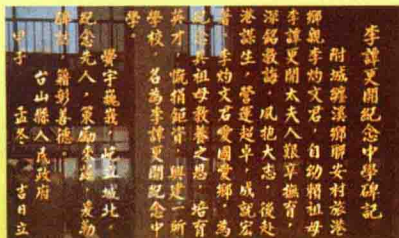 李譚更開紀念中學碑記
附城㙟溪鄉聯安村旅港
鄉親李灼文君，自幼賴祖母
李譚更開太夫人艱辛撫育，
深銘教誨，夙抱大志，後赴
港謀生，營運超卓，成就宏
著。李灼文君愛國愛鄉，為
紀念其祖母教養之恩，培育
英才，慨捐鉅資，興建一所
學校，名為李譚更開紀念中
學。
黌宇巍峩，屹立城北，
紀念先人，策勵來茲，爰勒
碑誌，藉彰善德。
台山縣人民政府
甲子 孟冬 吉日立